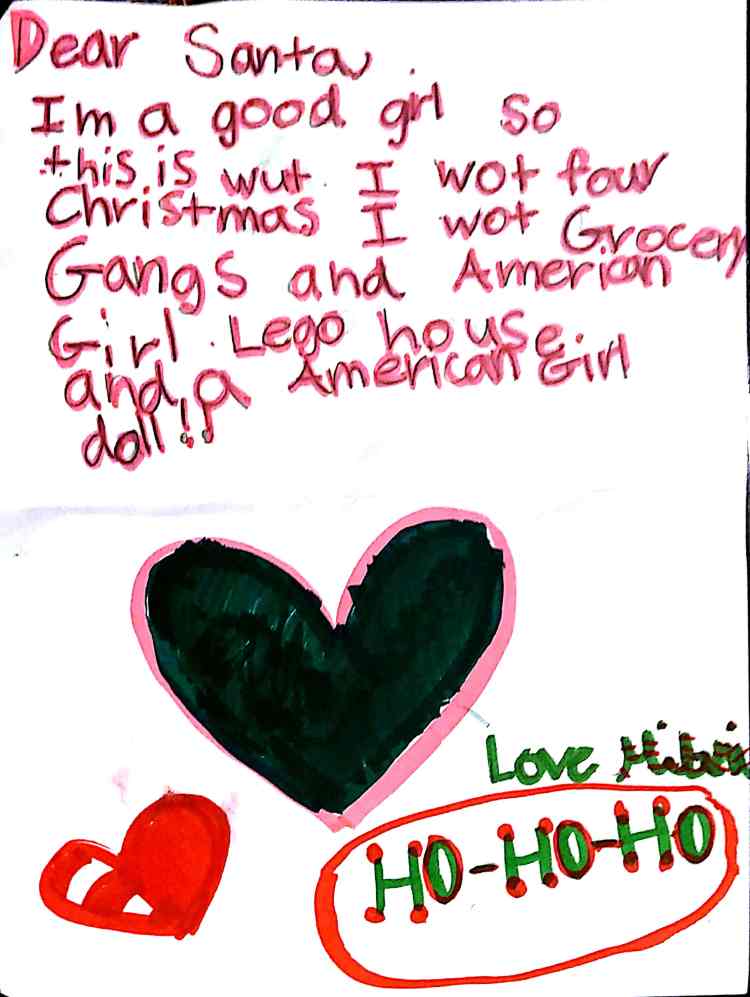 Dear Santa
Im a good girl so
this is wut I wot four
Christmas I wot Grocery
Gangs and American
Girl Lego house
and a American Girl
doll!!
Love
HO-HO-HO